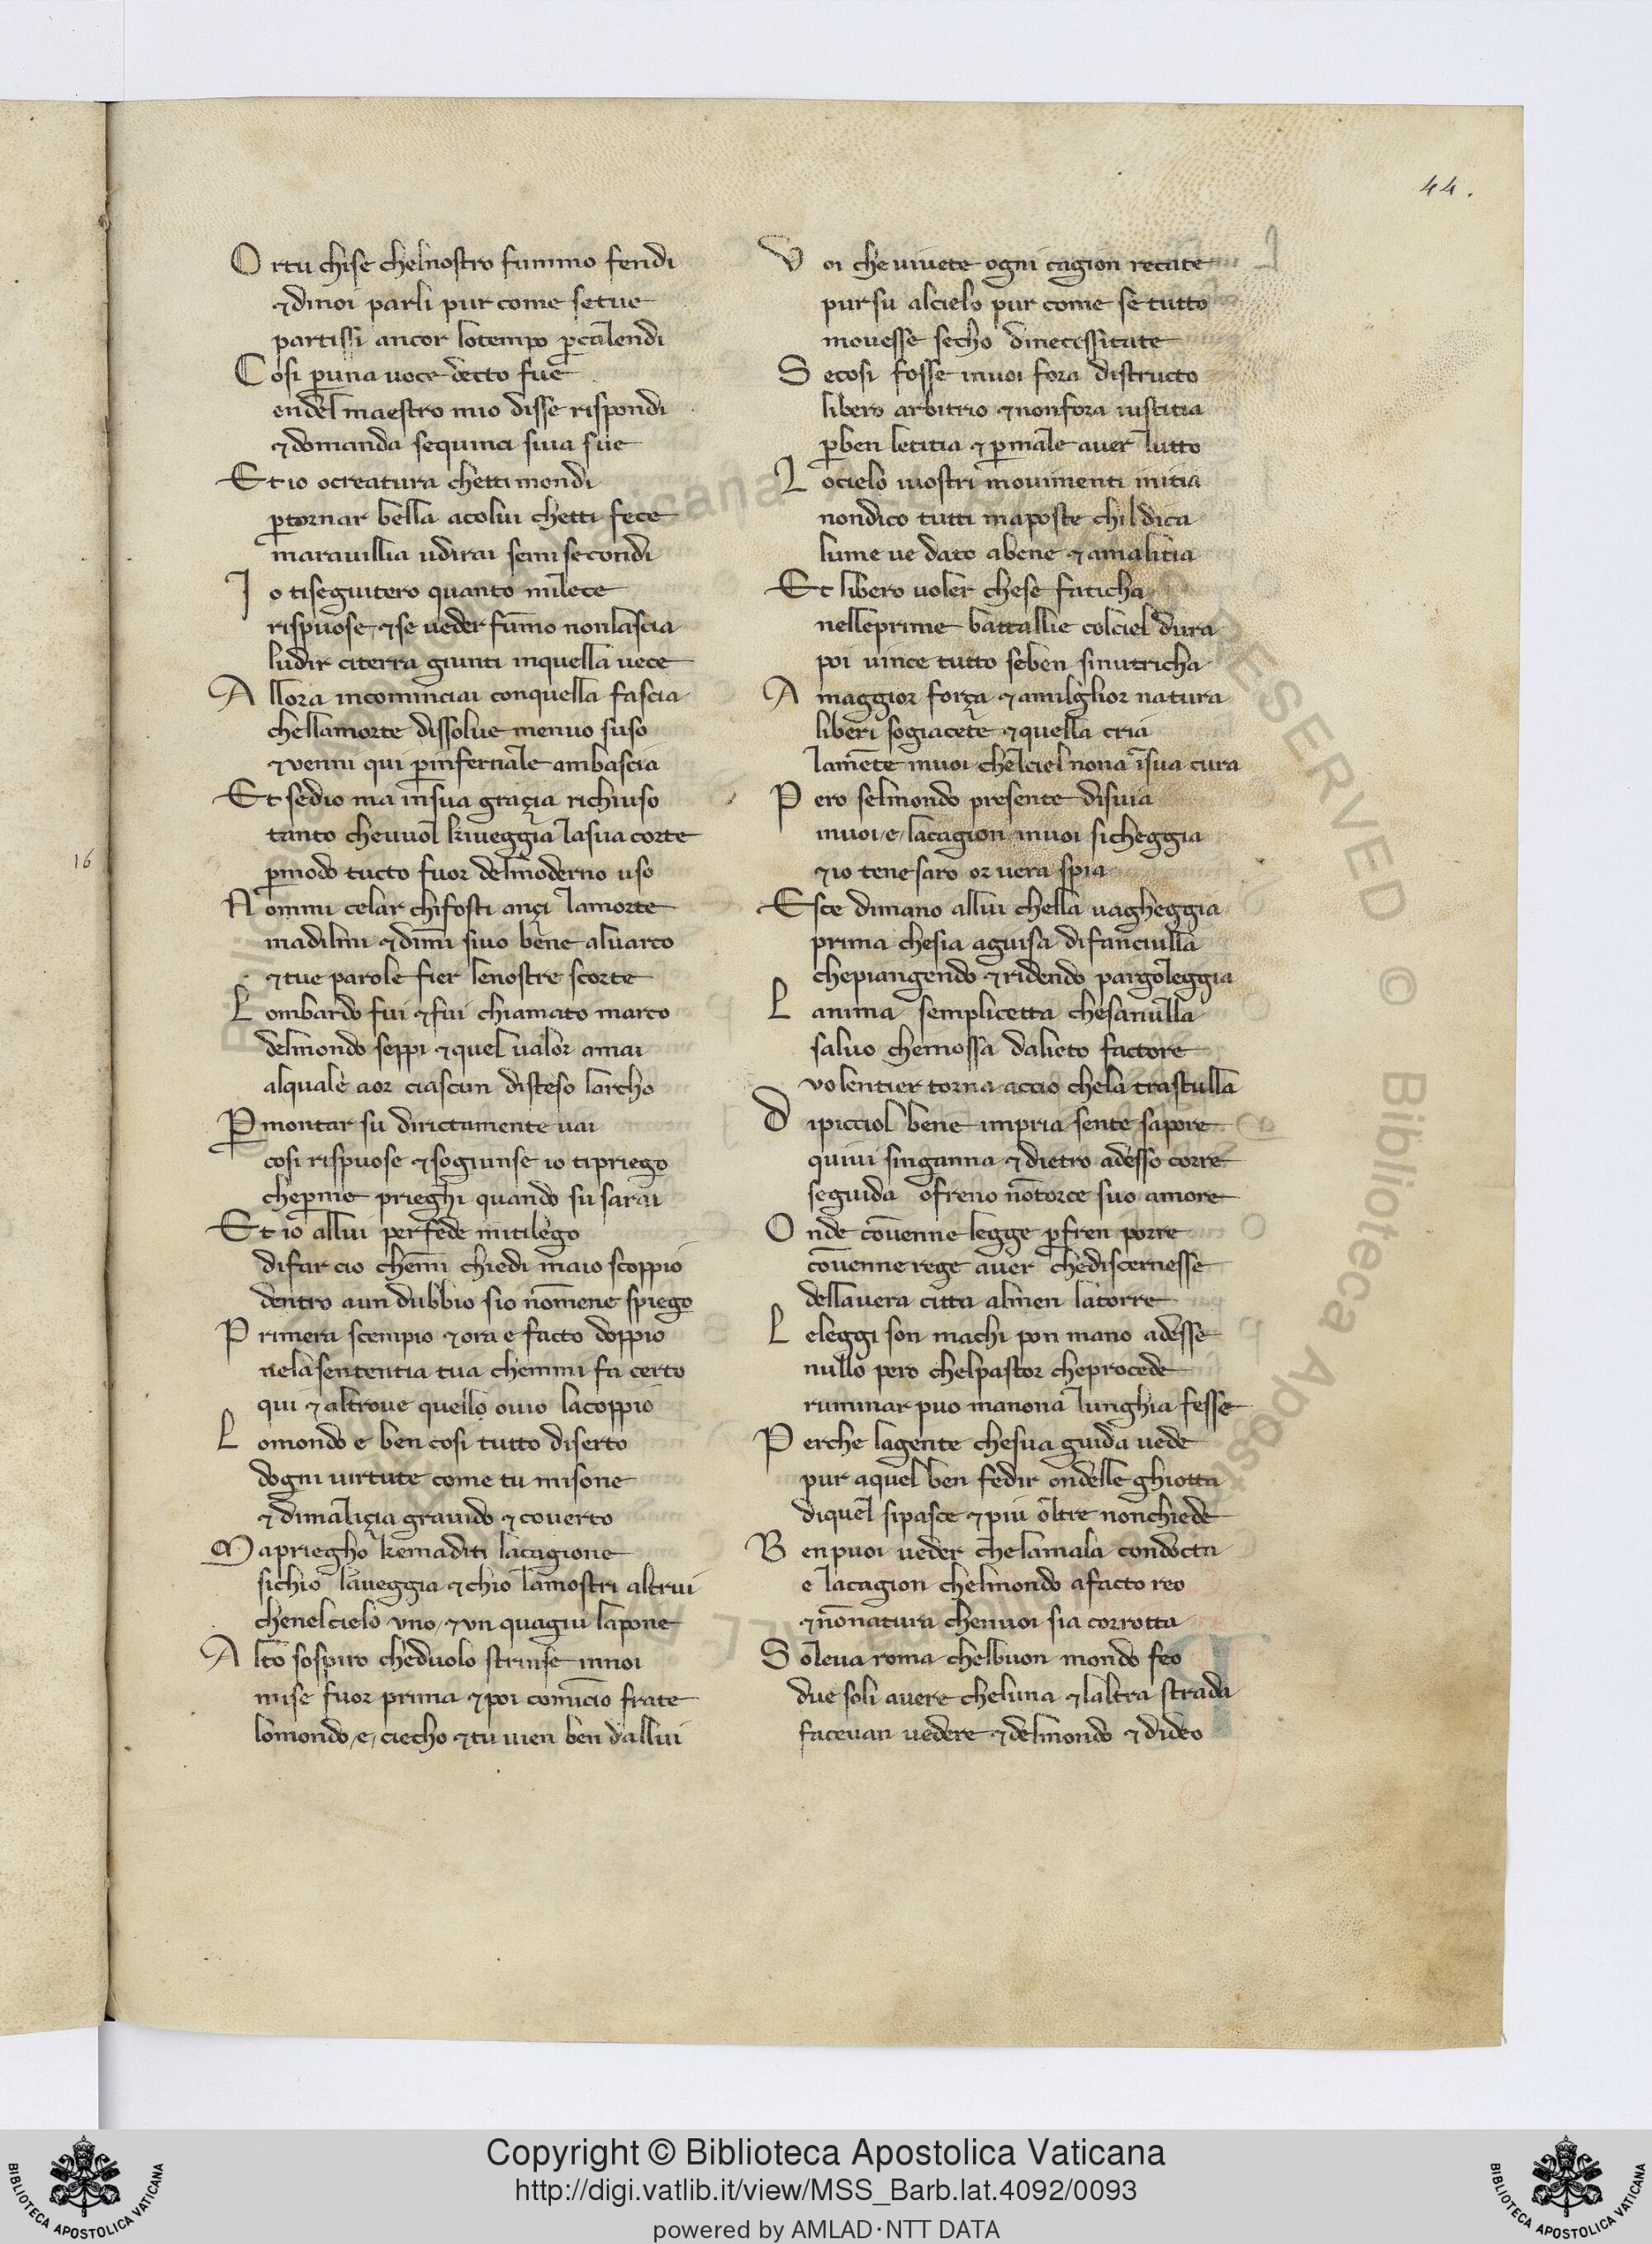 44.
O rtu chise chelnostro fummo fendi
⁊dinoi parli pur come setue
partissi ancor lotempo ꝑcalendi
C osi ꝑuna uoce decto fue
ondel maestro mio disse rispondi
⁊domanda sequinci siua sue
Et io ocreatura chetti mondi
ꝑtornar bella acolui chetti fece
marauillia udirai semi secondi
I o tiseguitero quanto milece
rispuose ⁊se ueder fūmo nonlascia
ludir citerra giunti inquella uece
A llora incominciai conquella fascia
chellamorte dissolue menuo suso
⁊venni qui ꝑinfernale ambascia
Et sedio ma insua graçia richiuso
tanto cheuuol kiueggia lasua corte
ꝑmodo tucto fuor delmoderno uso
N ommi celar chifosti ançi lamorte
madilmi ⁊dimi siuo bene aluarco
⁊tue parole fier lenostre scorte
L ombardo fui ⁊fui chiamato marco
delmondo seppi ⁊quel ualor amai
alquale aor ciascun disteso larcho
ꝑmontar su dirictamente uai
cosi rispuose ⁊sogiunse io tipriego
cheꝑme prieghi quando su sarai
Et io allui per fede mitilego
difar cio chemi chiedi maio scoppio
dentro aun dubbio sio nōmene spiego
P rimera scempio ⁊ora e facto doppio
nela sententia tua chemmi fa certo
qui ⁊altroue quello ouio lacoppio
L omondo e ben cosi tutto diserto
dogni uirtute come tu misone
⁊dimaliçia grauido ⁊couerto
M apriegho kemaditi lacagione
sichio laueggia ⁊chio lamostri altrui
chenel cielo uno ⁊un quagiu lapone
A lto sospiro cheduolo strinse innoi
mise fuor prima ⁊poi comīcio frate
lomondo e ciecho ⁊tu uien ben dallui
V oi che uiuete ogni cagion recate
pur su alcielo pur come se tutto
mouesse secho dinecessitate
S ecosi fosse inuoi fora distructo
libero arbitrio ⁊nonfora iustitia
ꝑben letitia ⁊ꝑmale auer lutto
L ocielo iuostri mouimenti initia
nondico tutti maposte childica
lume ue dato abene ⁊amalitia
Et libero uoler chese faticha
nelleprime battallie colciel dura
poi uince tutto seben sinutricha
A maggior força ⁊amilglior natura
liberi sogiacete ⁊quella cria
lamēte inuoi chelciel nona īsua cura
P ero selmondo presente disuia
inuoi e lacagion inuoi sicheggia
⁊io tenesaro or uera spia
Esce dimano allui chella uagheggia
prima chesia aguisa difanciulla
chepiangendo ⁊ridendo pargoleggia
L anima semplicetta chesanulla
saluo chemossa dalieto factore
uolentier torna accio chela trastulla
D ipicciol bene impria sente sapore
quiui singanna ⁊dietro adesso corre
seguida ofreno nōtorce suo amore
O nde cōuenne legge ꝑfren porre
cōuenne rege auer chediscernesse
dellauera citta almen latorre
L eleggi son machi pon mano adesse
nullo pero chelpastor cheprocede
ruminar puo manona lunghia fesse
P erche lagente chesua guida uede
pur aquel ben fedir ondelle ghiotta
diquel sipasce ⁊piu oltre nonchiede
B enpuoi ueder chelamala condocta
e lacagion chelmondo afacto reo
⁊nōnatura chenuoi sia corrotta
S oleua roma chelbuon mondo feo
due soli auere cheluna ⁊laltra strada
faceuan uedere ⁊delmondo ⁊dideo
16
Copyright © Biblioteca Apostolica Vaticana
http://digi.vatlib.it/view/MSS_Barb.lat.4092/0093
powered by AMLAD·NTT DATA
BIBLIOTECA APOSTOLICA VATICANA
BIBLIOTECA APOSTOLICA VATICANA